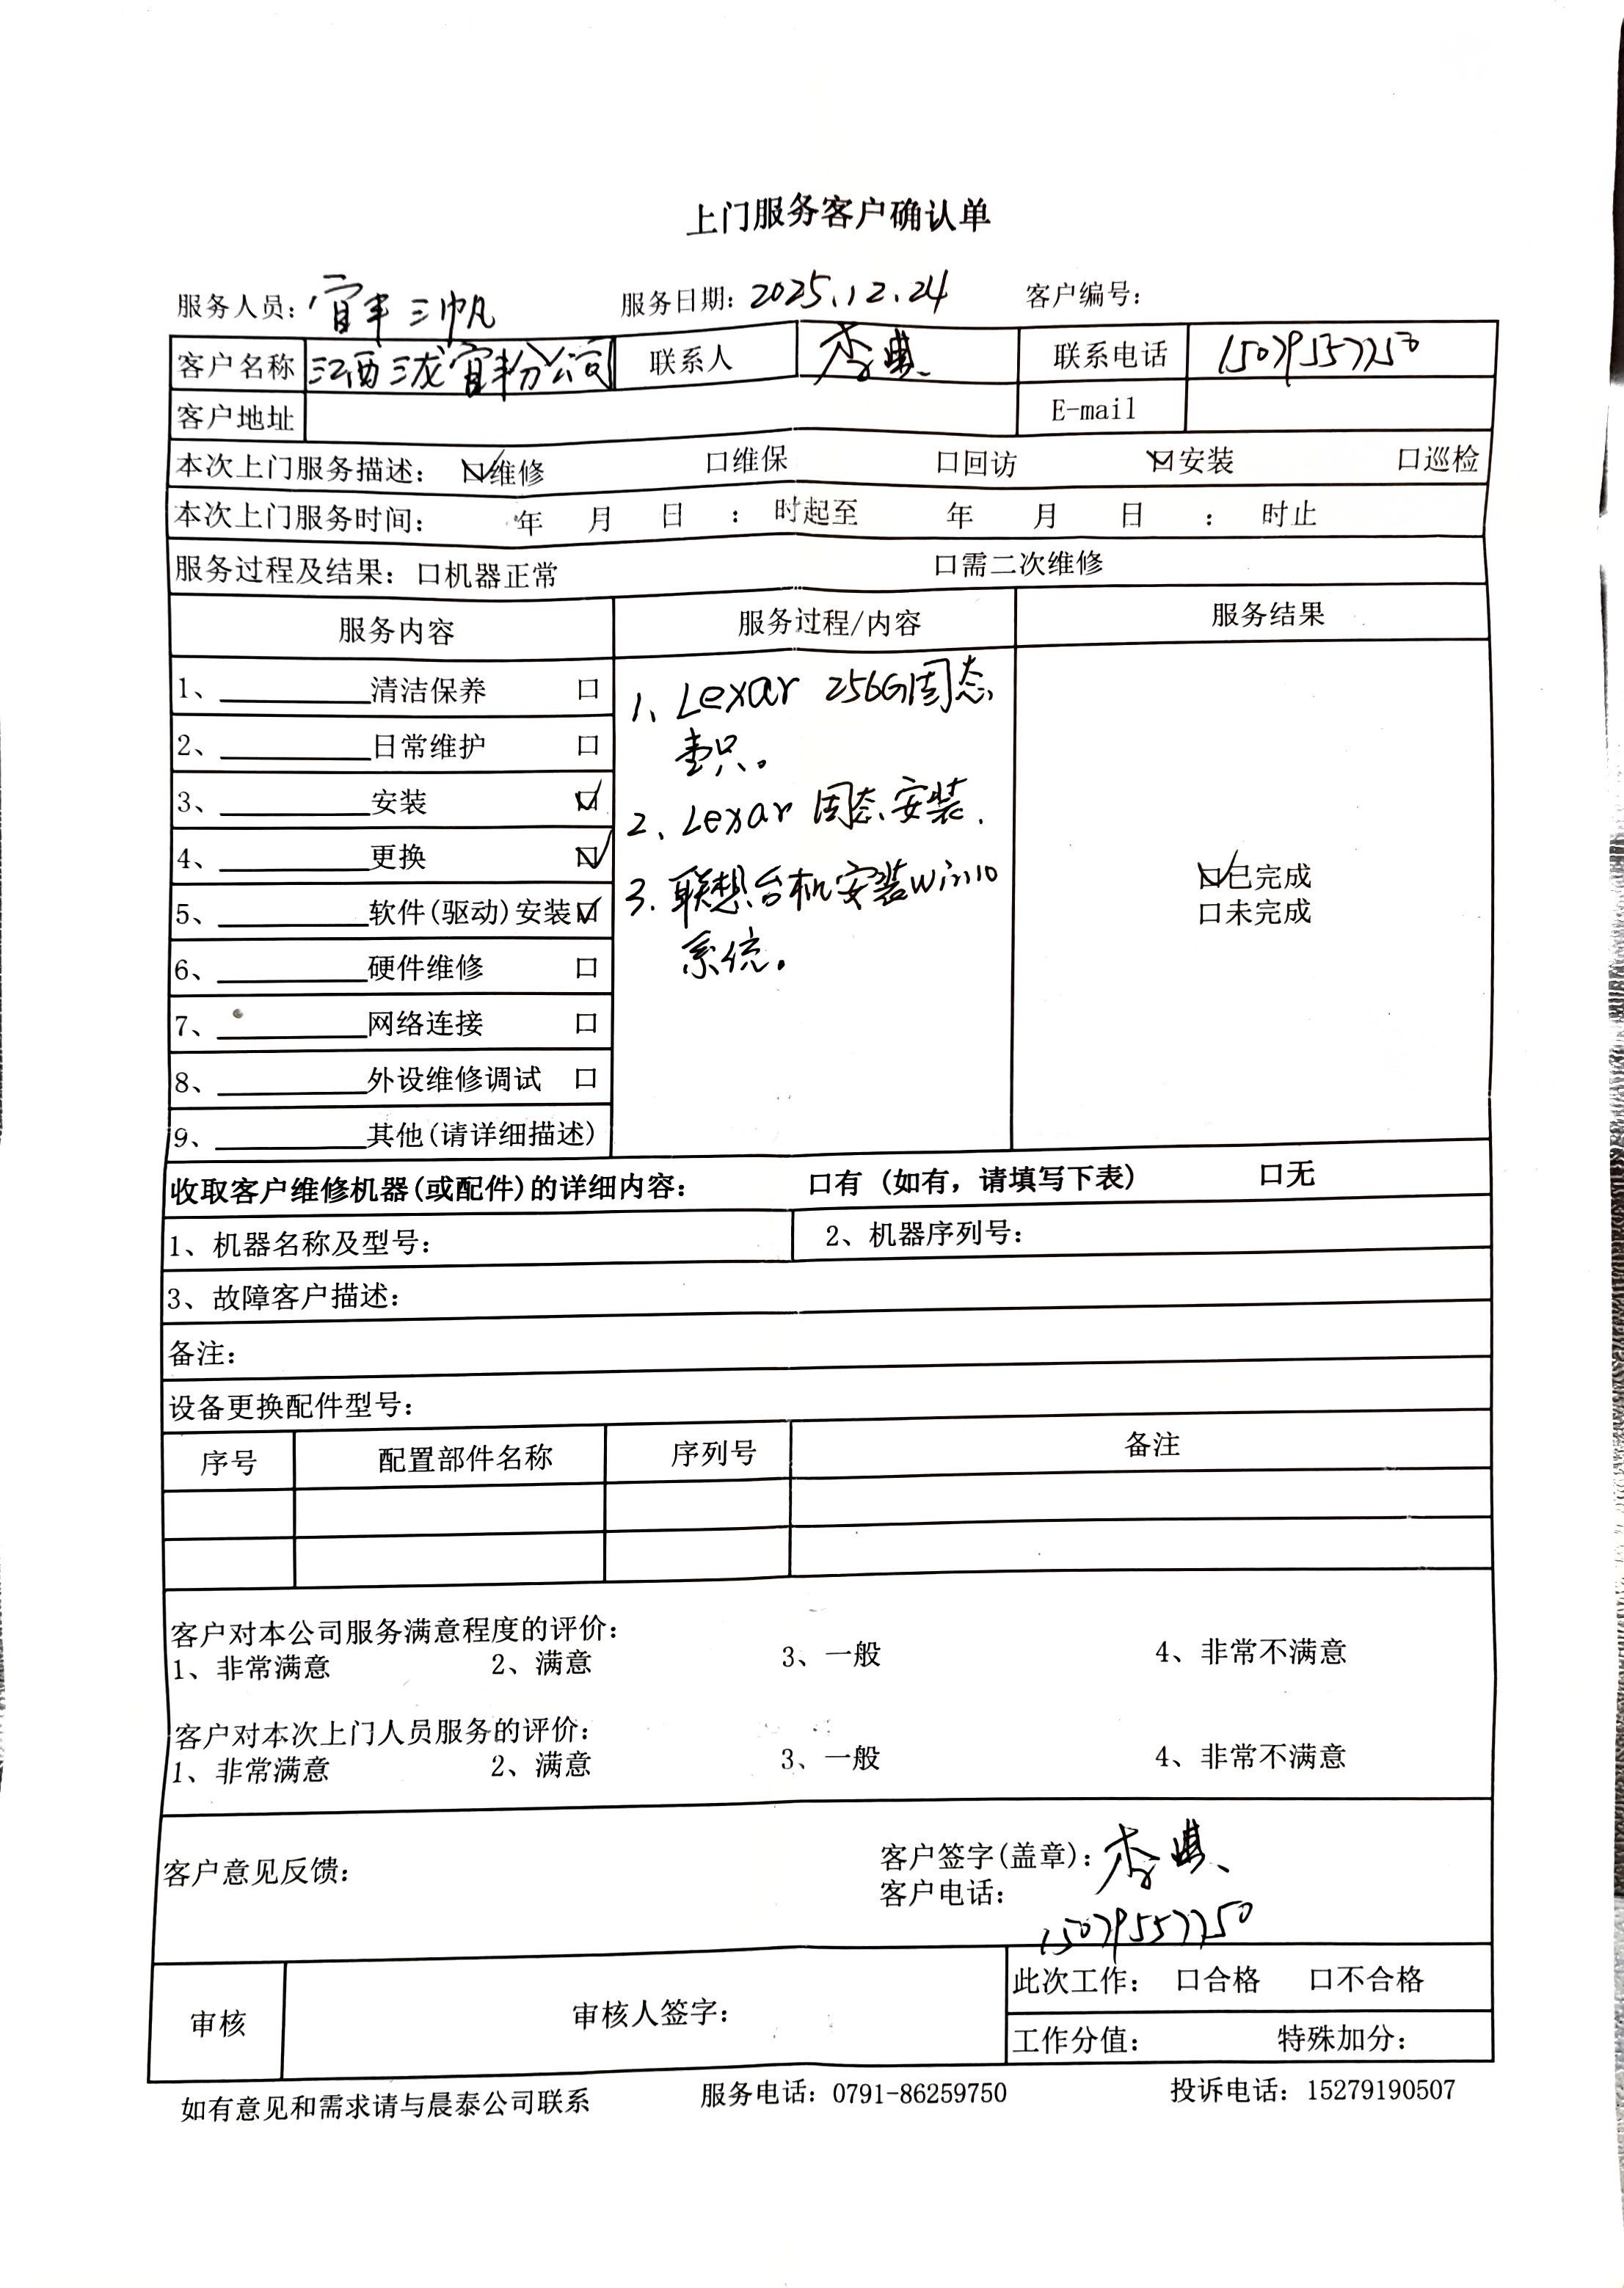 上门服务客户确认单
服务人员：宜丰三帆 服务日期：2025.12.24 客户编号：
客户名称 江西三龙宜丰分公司 联系人 李 联系电话 15079557750
客户地址 E-mail
本次上门服务描述：☑维修 口维保 口回访 ☑安装 口巡检
本次上门服务时间： 年 月 日 ： 时起至 年 月 日 ： 时止
服务过程及结果：口机器正常 口需二次维修
服务内容 服务过程/内容 服务结果
1、__________清洁保养 口
2、__________日常维护 口
3、__________安装 ☑
4、__________更换 ☑
5、__________软件(驱动)安装☑
6、__________硬件维修 口
7、__________网络连接 口
8、__________外设维修调试 口
9、__________其他(请详细描述)
1、Lexar 256G固态
壹只。
2、Lexar 固态安装.
3.联想台机安装Win10
系统。
☑已完成
口未完成
收取客户维修机器(或配件)的详细内容： 口有 (如有，请填写下表) 口无
1、机器名称及型号： 2、机器序列号：
3、故障客户描述：
备注：
设备更换配件型号：
序号 配置部件名称 序列号 备注
客户对本公司服务满意程度的评价：
1、非常满意 2、满意 3、一般 4、非常不满意
客户对本次上门人员服务的评价：
1、非常满意 2、满意 3、一般 4、非常不满意
客户意见反馈：
客户签字(盖章)：李
客户电话：
15079557750
审核 审核人签字：
此次工作： 口合格 口不合格
工作分值： 特殊加分：
如有意见和需求请与晨泰公司联系 服务电话：0791-86259750 投诉电话：15279190507